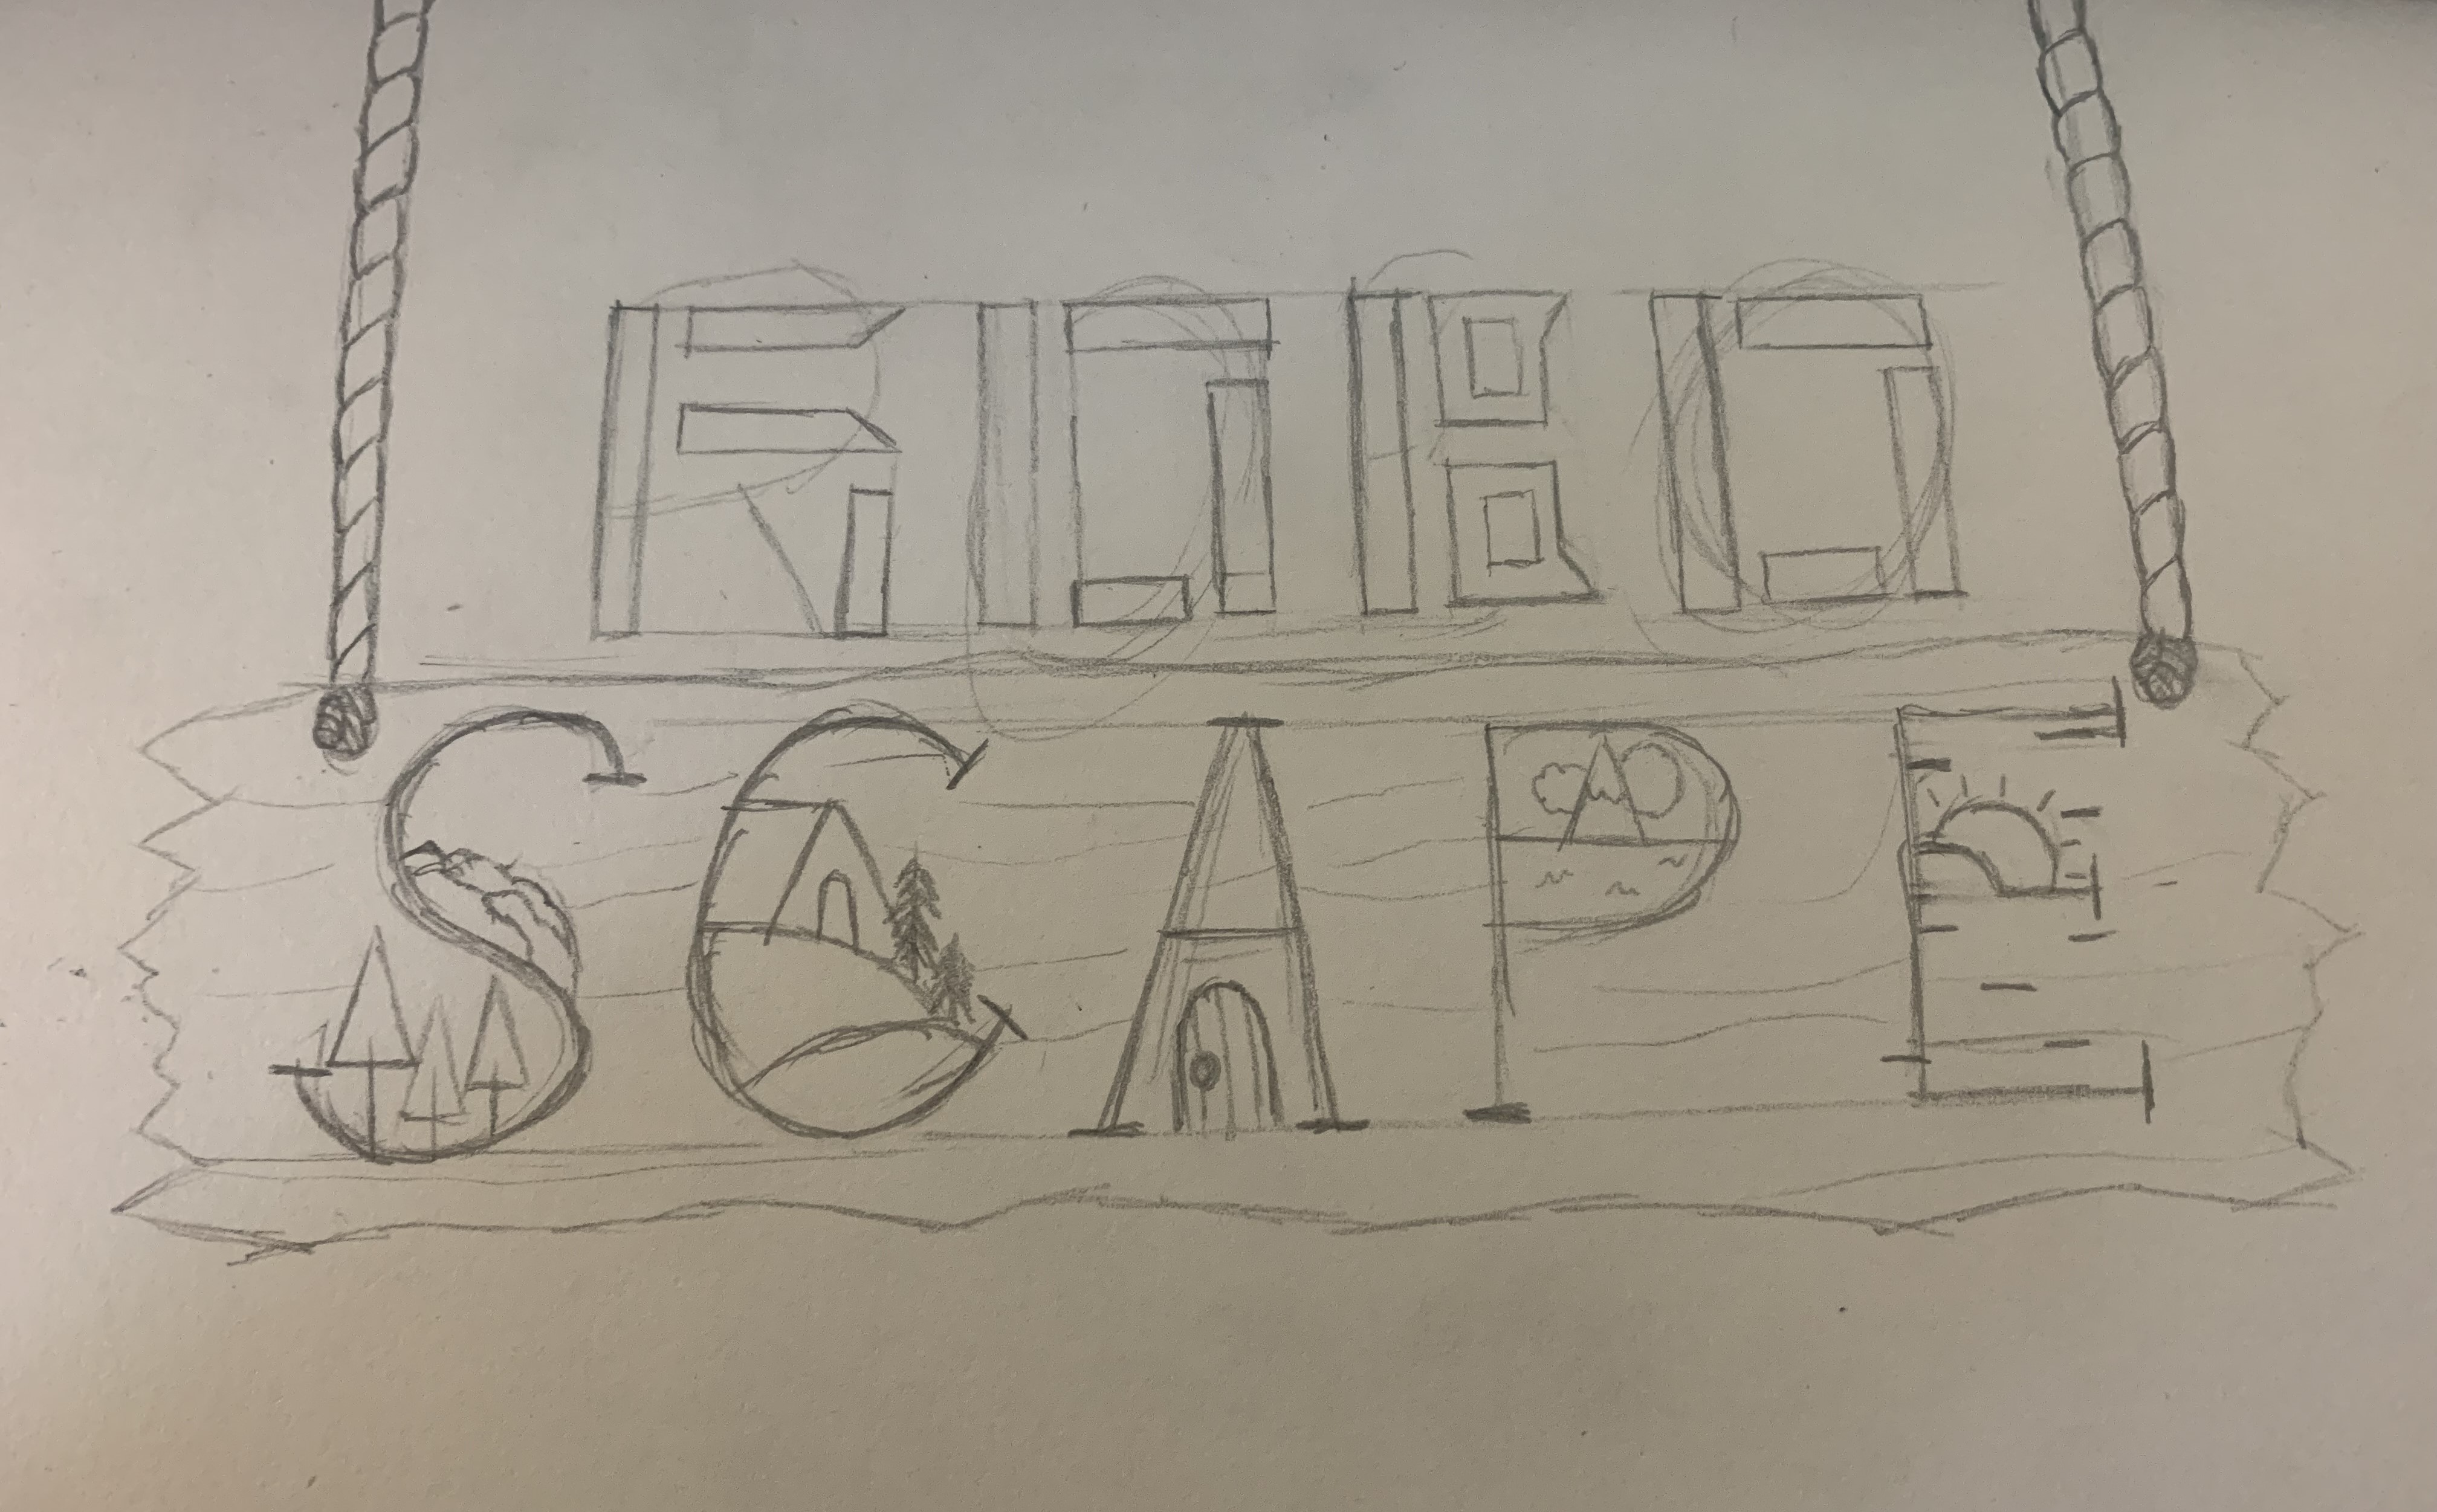 ROBO
SCAPE